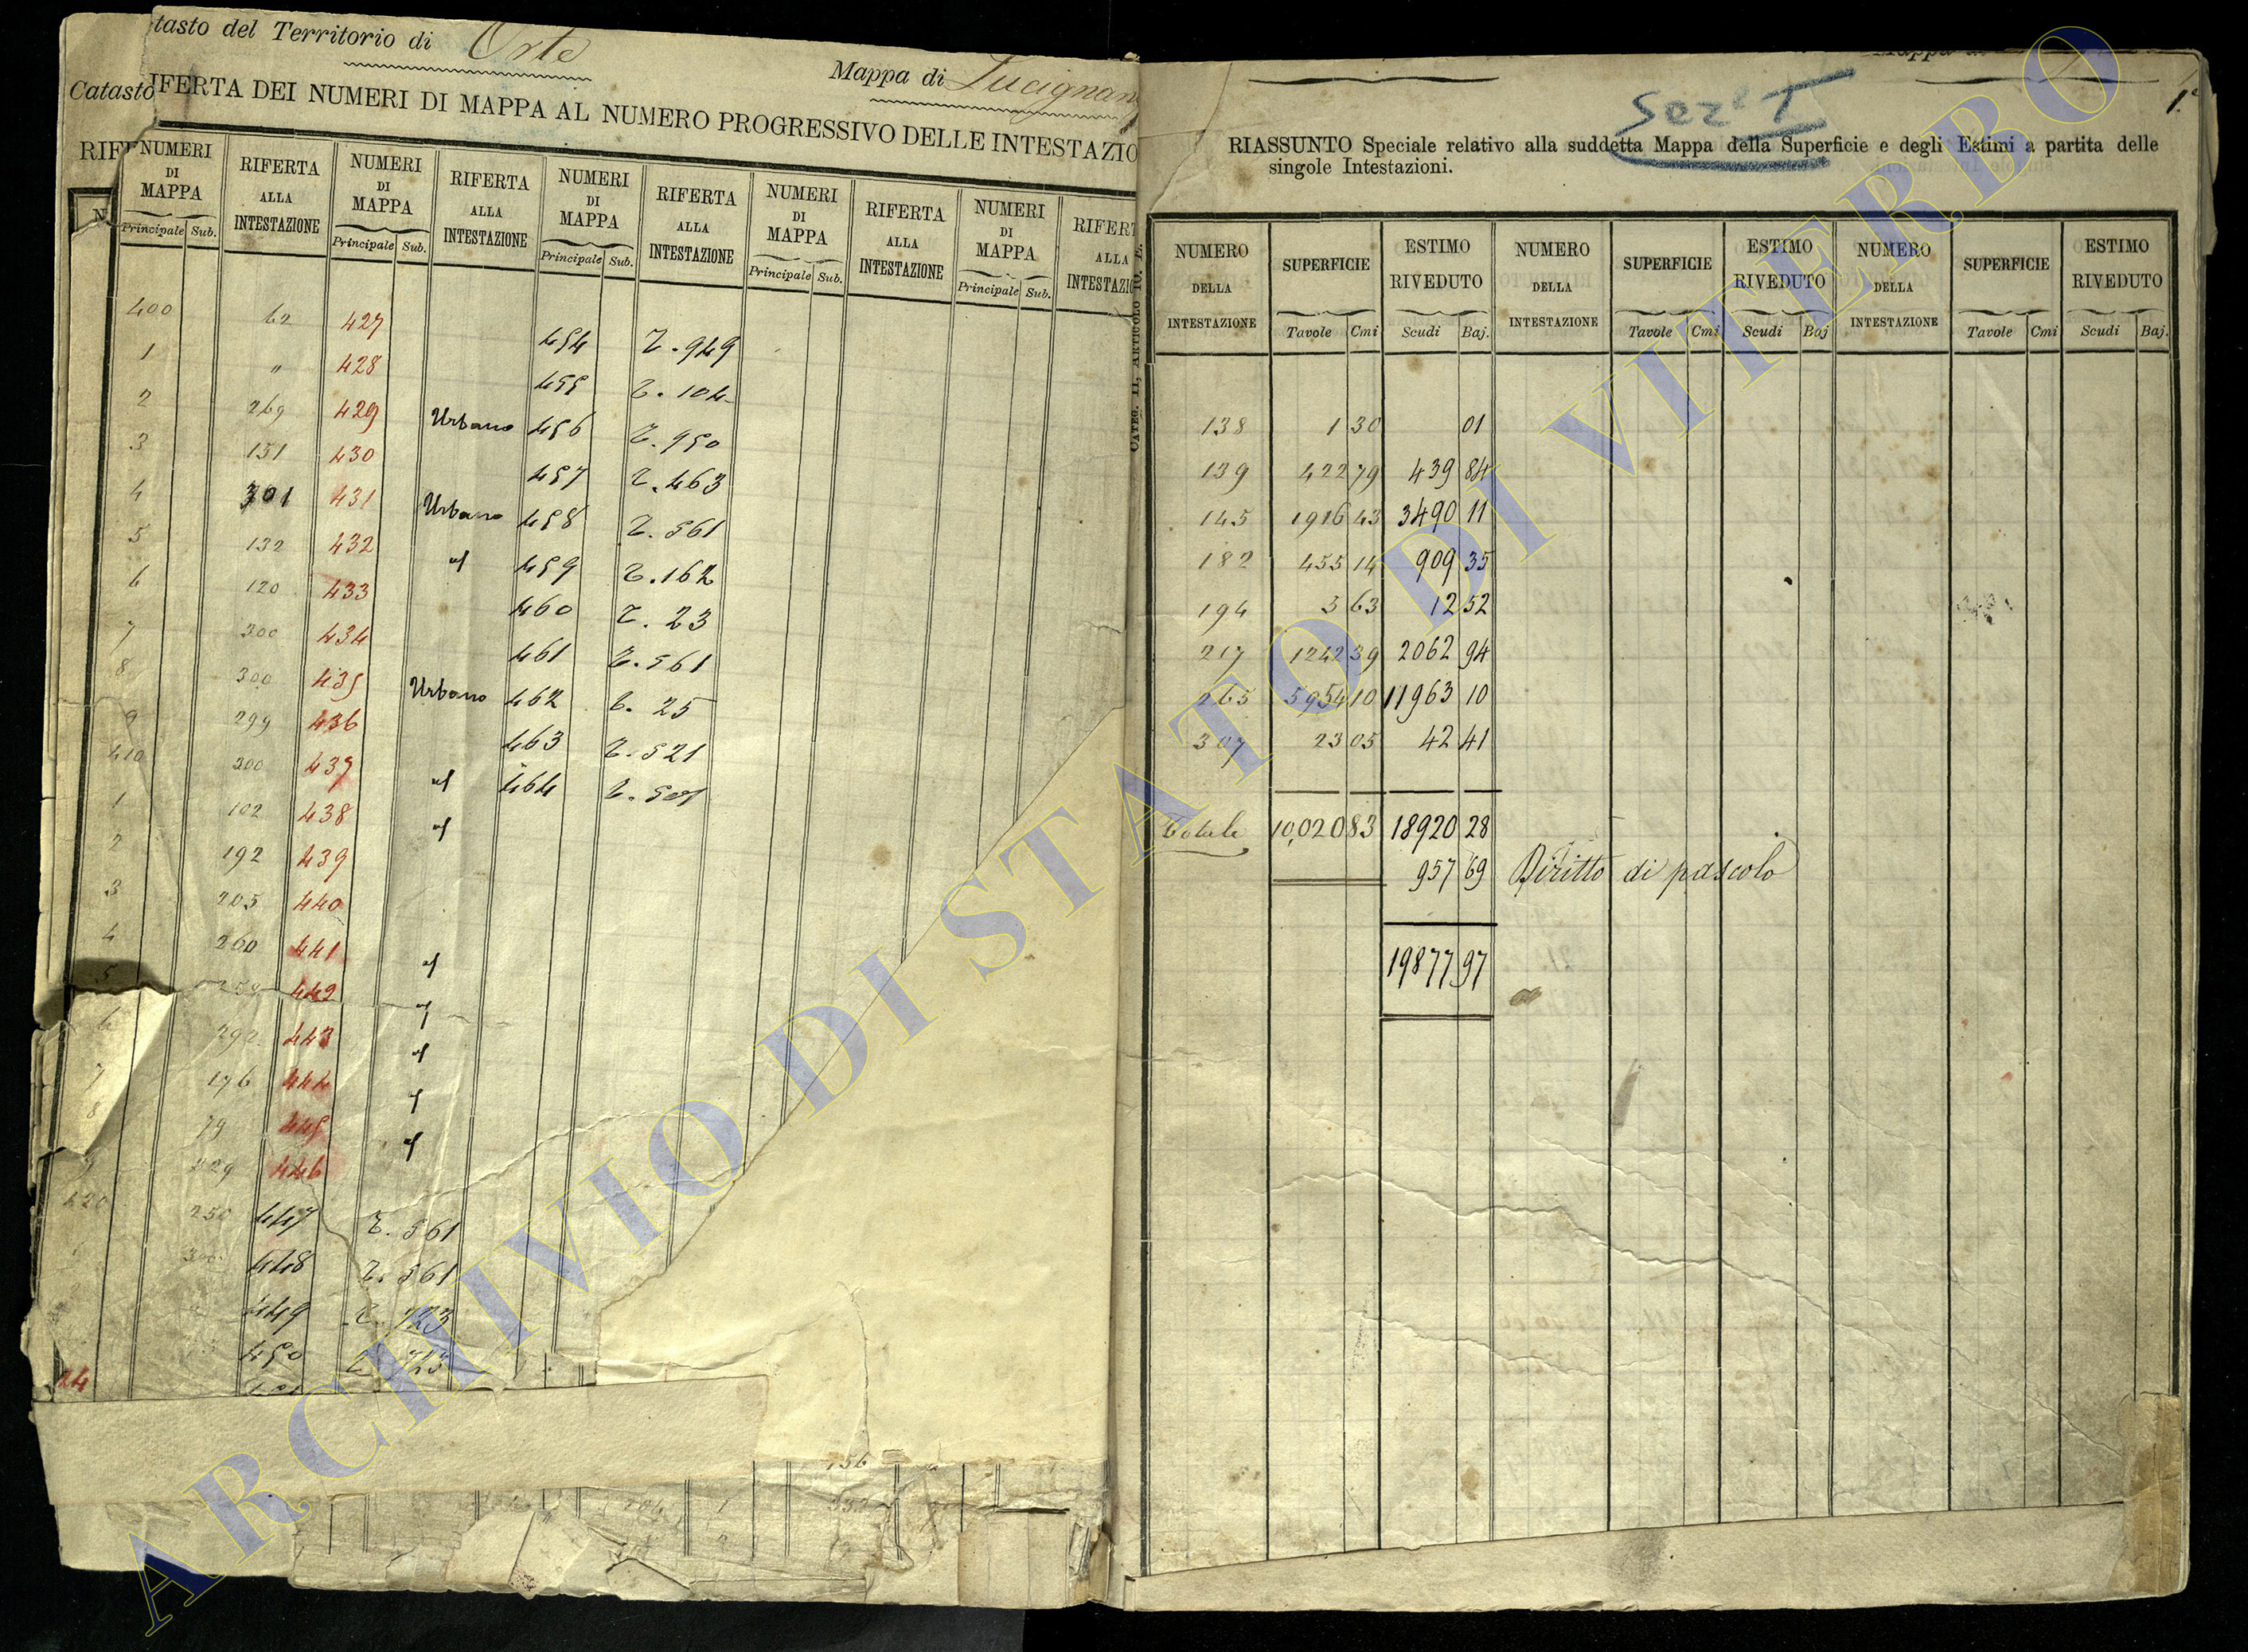 tasto del Territorio di Orte
Mappa di Lucignano
Catasto
IFERTA DEI NUMERI DI MAPPA AL NUMERO PROGRESSIVO DELLE INTESTAZIO
RIF
NUMERI DI MAPPA RIFERTA ALLA INTESTAZIONE NUMERI DI MAPPA RIFERTA ALLA INTESTAZIONE NUMERI DI MAPPA RIFERTA ALLA INTESTAZIONE NUMERI DI MAPPA RIFERTA ALLA INTESTAZIONE NUMERI DI MAPPA RIFERT ALLA INTESTAZIO
Principale Sub. Principale Sub. Principale Sub. Principale Sub. Principale Sub.
400 62 427 454 T. 949
1 " 428 455 T. 104
2 269 429 Urbano 456 T. 950
3 151 430 457 T. 463
4 301 431 Urbano 458 T. 561
5 132 432 id 459 T. 162
6 120 433 460 T. 23
7 300 434 461 T. 561
8 300 435 Urbano 462 T. 25
9 299 436 463 T. 521
410 300 437 id 464
1 102 438 id
2 192 439
3 205 440
4 260 441 id
5 259 442 id
6 292 443 id
7 176 444 id
8 79 445 id
9 229 446
420 250 447 T. 561
448 T. 561
449 T. 123
450
24
CATEG. II, ARTICOLO 10. E.
Sez.e I
1.a
RIASSUNTO Speciale relativo alla suddetta Mappa della Superficie e degli Estimi a partita delle
singole Intestazioni.
NUMERO DELLA INTESTAZIONE SUPERFICIE ESTIMO RIVEDUTO NUMERO DELLA INTESTAZIONE SUPERFICIE ESTIMO RIVEDUTO NUMERO DELLA INTESTAZIONE SUPERFICIE ESTIMO RIVEDUTO
Tavole Cmi Scudi Baj. Tavole Cmi Scudi Baj Tavole Cmi Scudi Baj.
138 1 30 01
139 422 79 439 84
145 1916 43 3490 11
182 455 14 909 35
194 5 63 12 52
217 1242 39 2062 94
265 5954 10 11963 10
307 23 05 42 41
Totale 10,020 83 18920 28
957 69 Diritto di pascolo
19877 97
ARCHIVIO DI STATO DI VITERBO